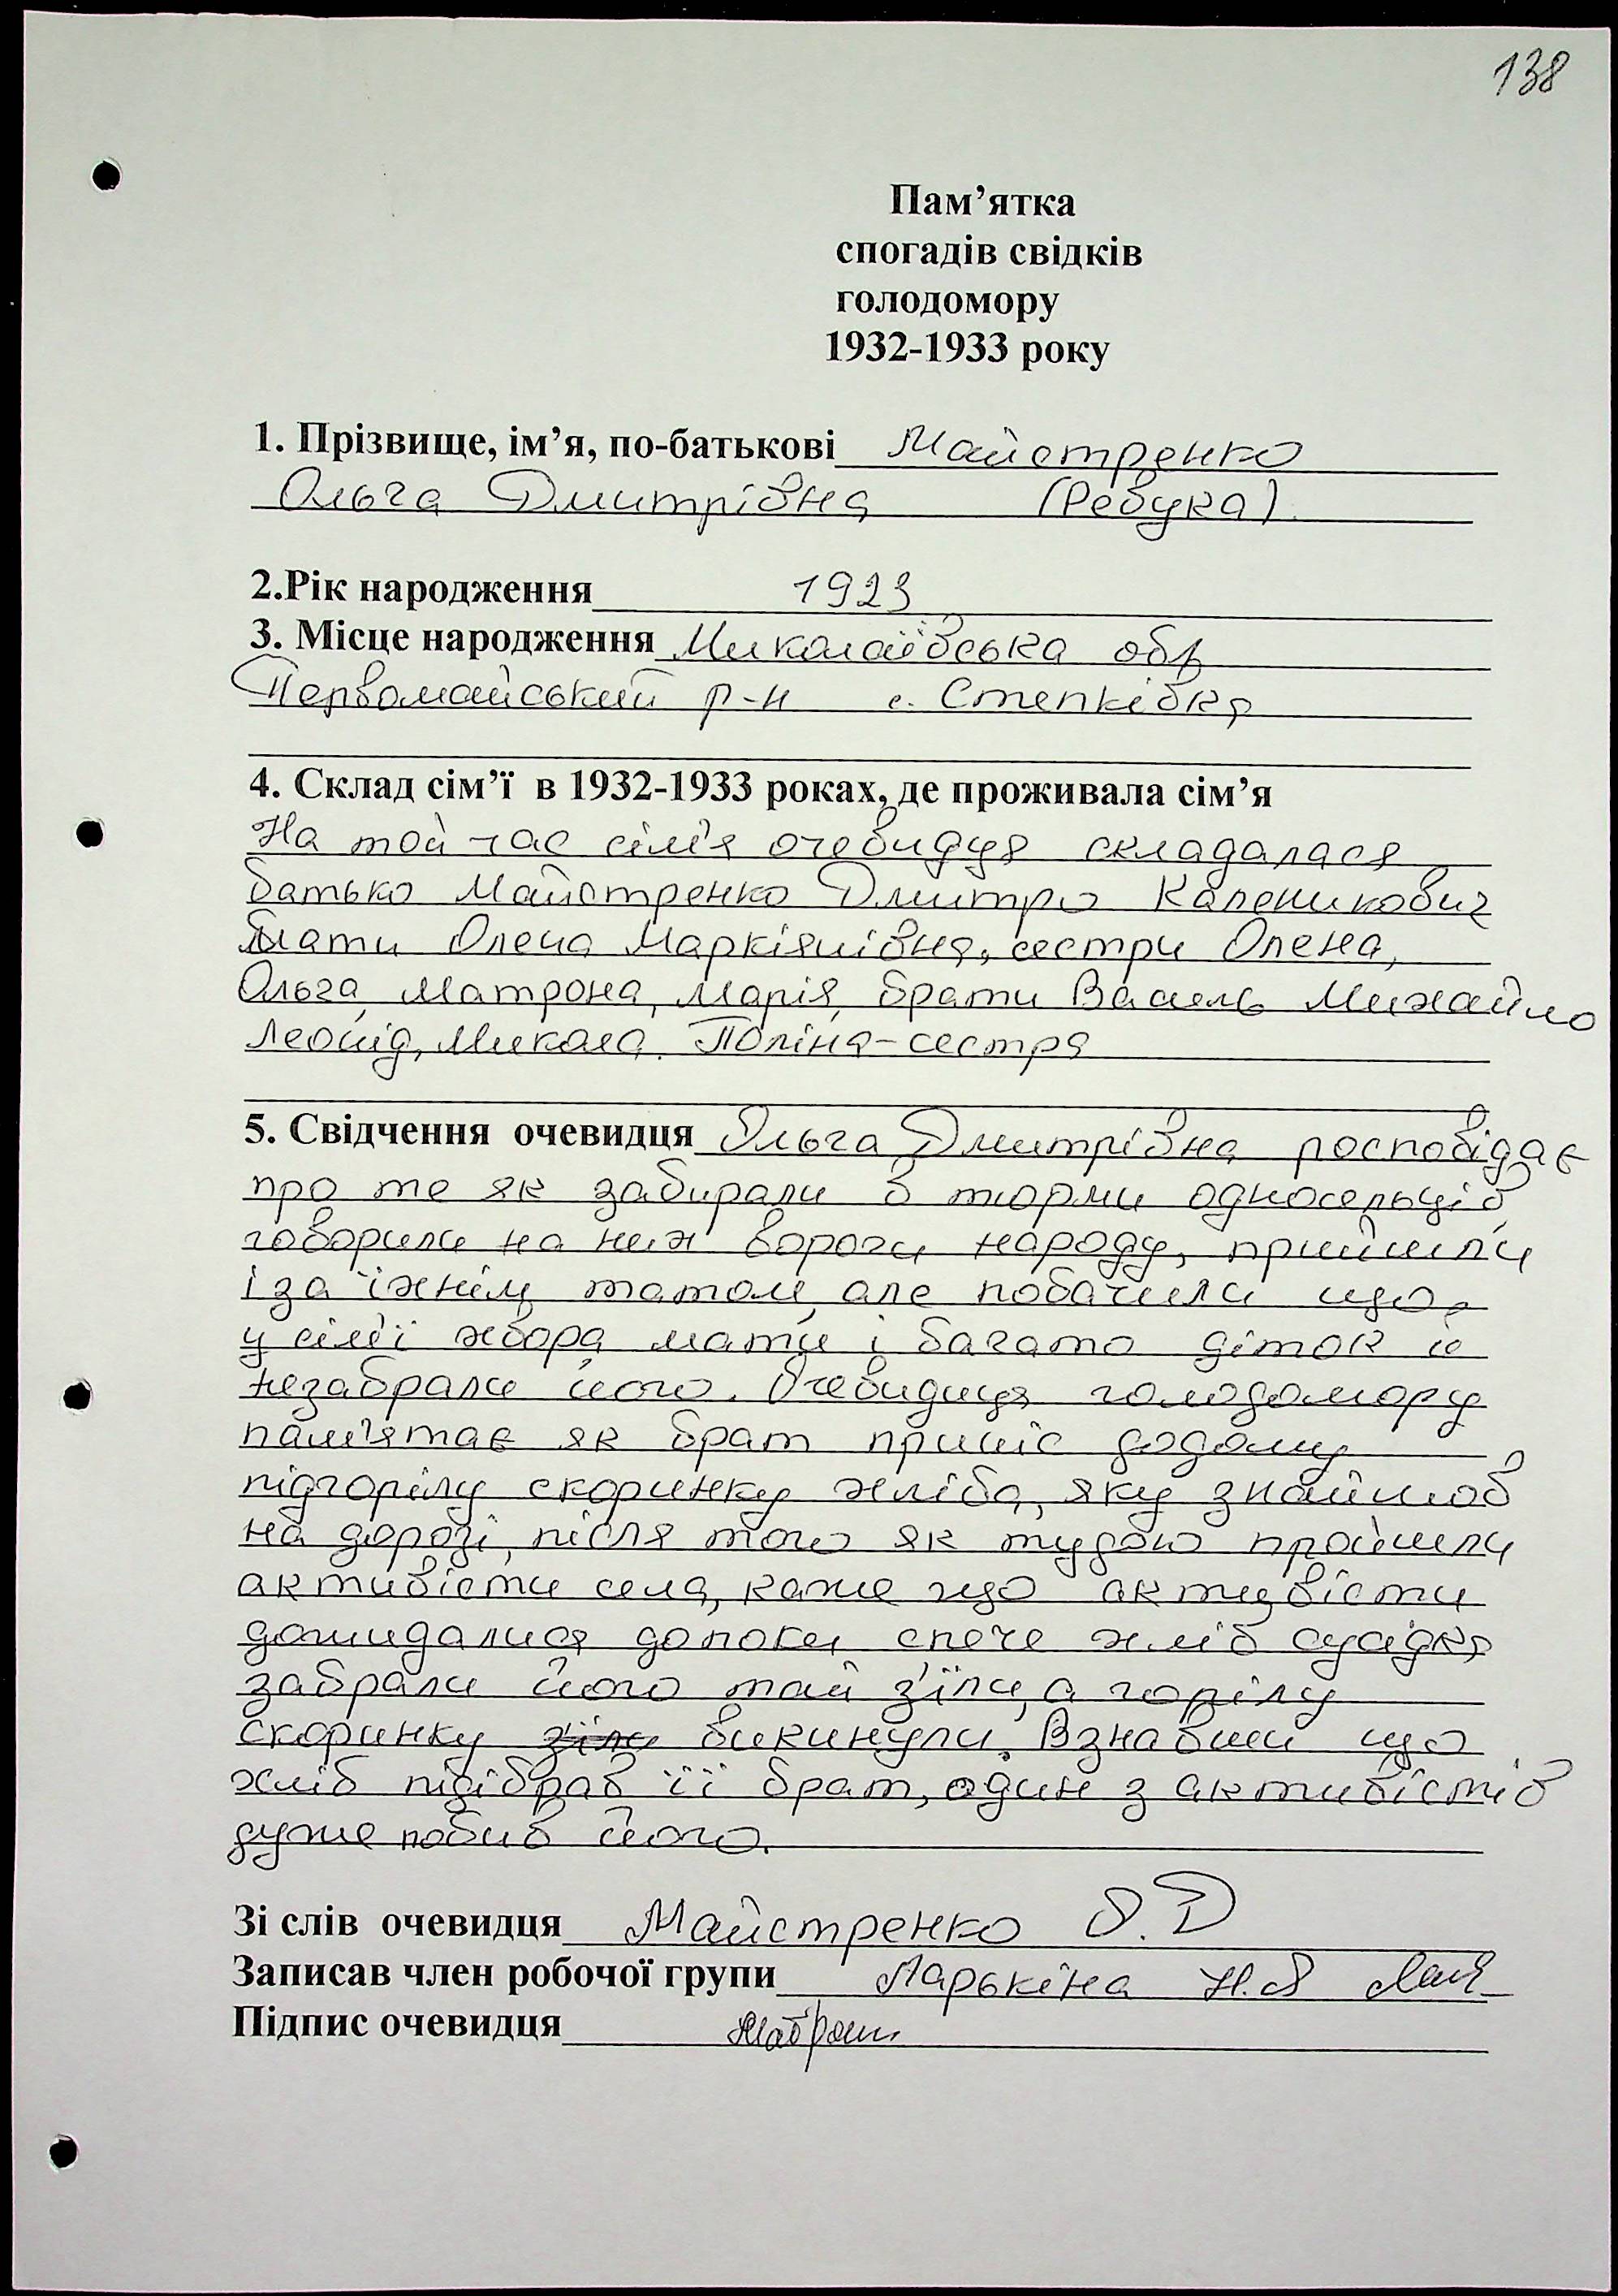 138
Пам’ятка
спогадів свідків
голодомору
1932-1933 року
1. Прізвище, ім’я, по-батькові Майстренко
Ольга Дмитрівна (Ревука)
2.Рік народження 1923
3. Місце народження Миколаївська обл
Первомайський р-н с. Степківка
4. Склад сім’ї в 1932-1933 роках, де проживала сім’я
На той час сім'я очевидця складалася
батько Майстренко Дмитро Каленикович
мати Олена Маркіянівна, сестри Олена,
Ольга, Матрона, Марія, брати Василь Михайло
Леонід, Микола. Поліна-сестра
5. Свідчення очевидця Ольга Дмитрівна росповідає
про те як забирали в тюрми односельців
говорили на них вороги народу, прийшли
і за їхнім татом, але побачили що
у сім'ї хвора мати і багато діток й
незабрали його. Очевидиця голодомору
пам'ятає як брат приніс додому
підгорілу скоринку хліба, яку знайшов
на дорозі, після того як тудою пройшли
активісти села, каже що активісти
дожидалися допоки спече хліб сусідка
забрали його тай з'їли, а горілу
скоринку зїли викинули. Взнавши що
хліб підібрав її брат, один з активістів
дуже побив його.
Зі слів очевидця Майстренко О.Д
Записав член робочої групи Ларькіна Н.Я
Підпис очевидця